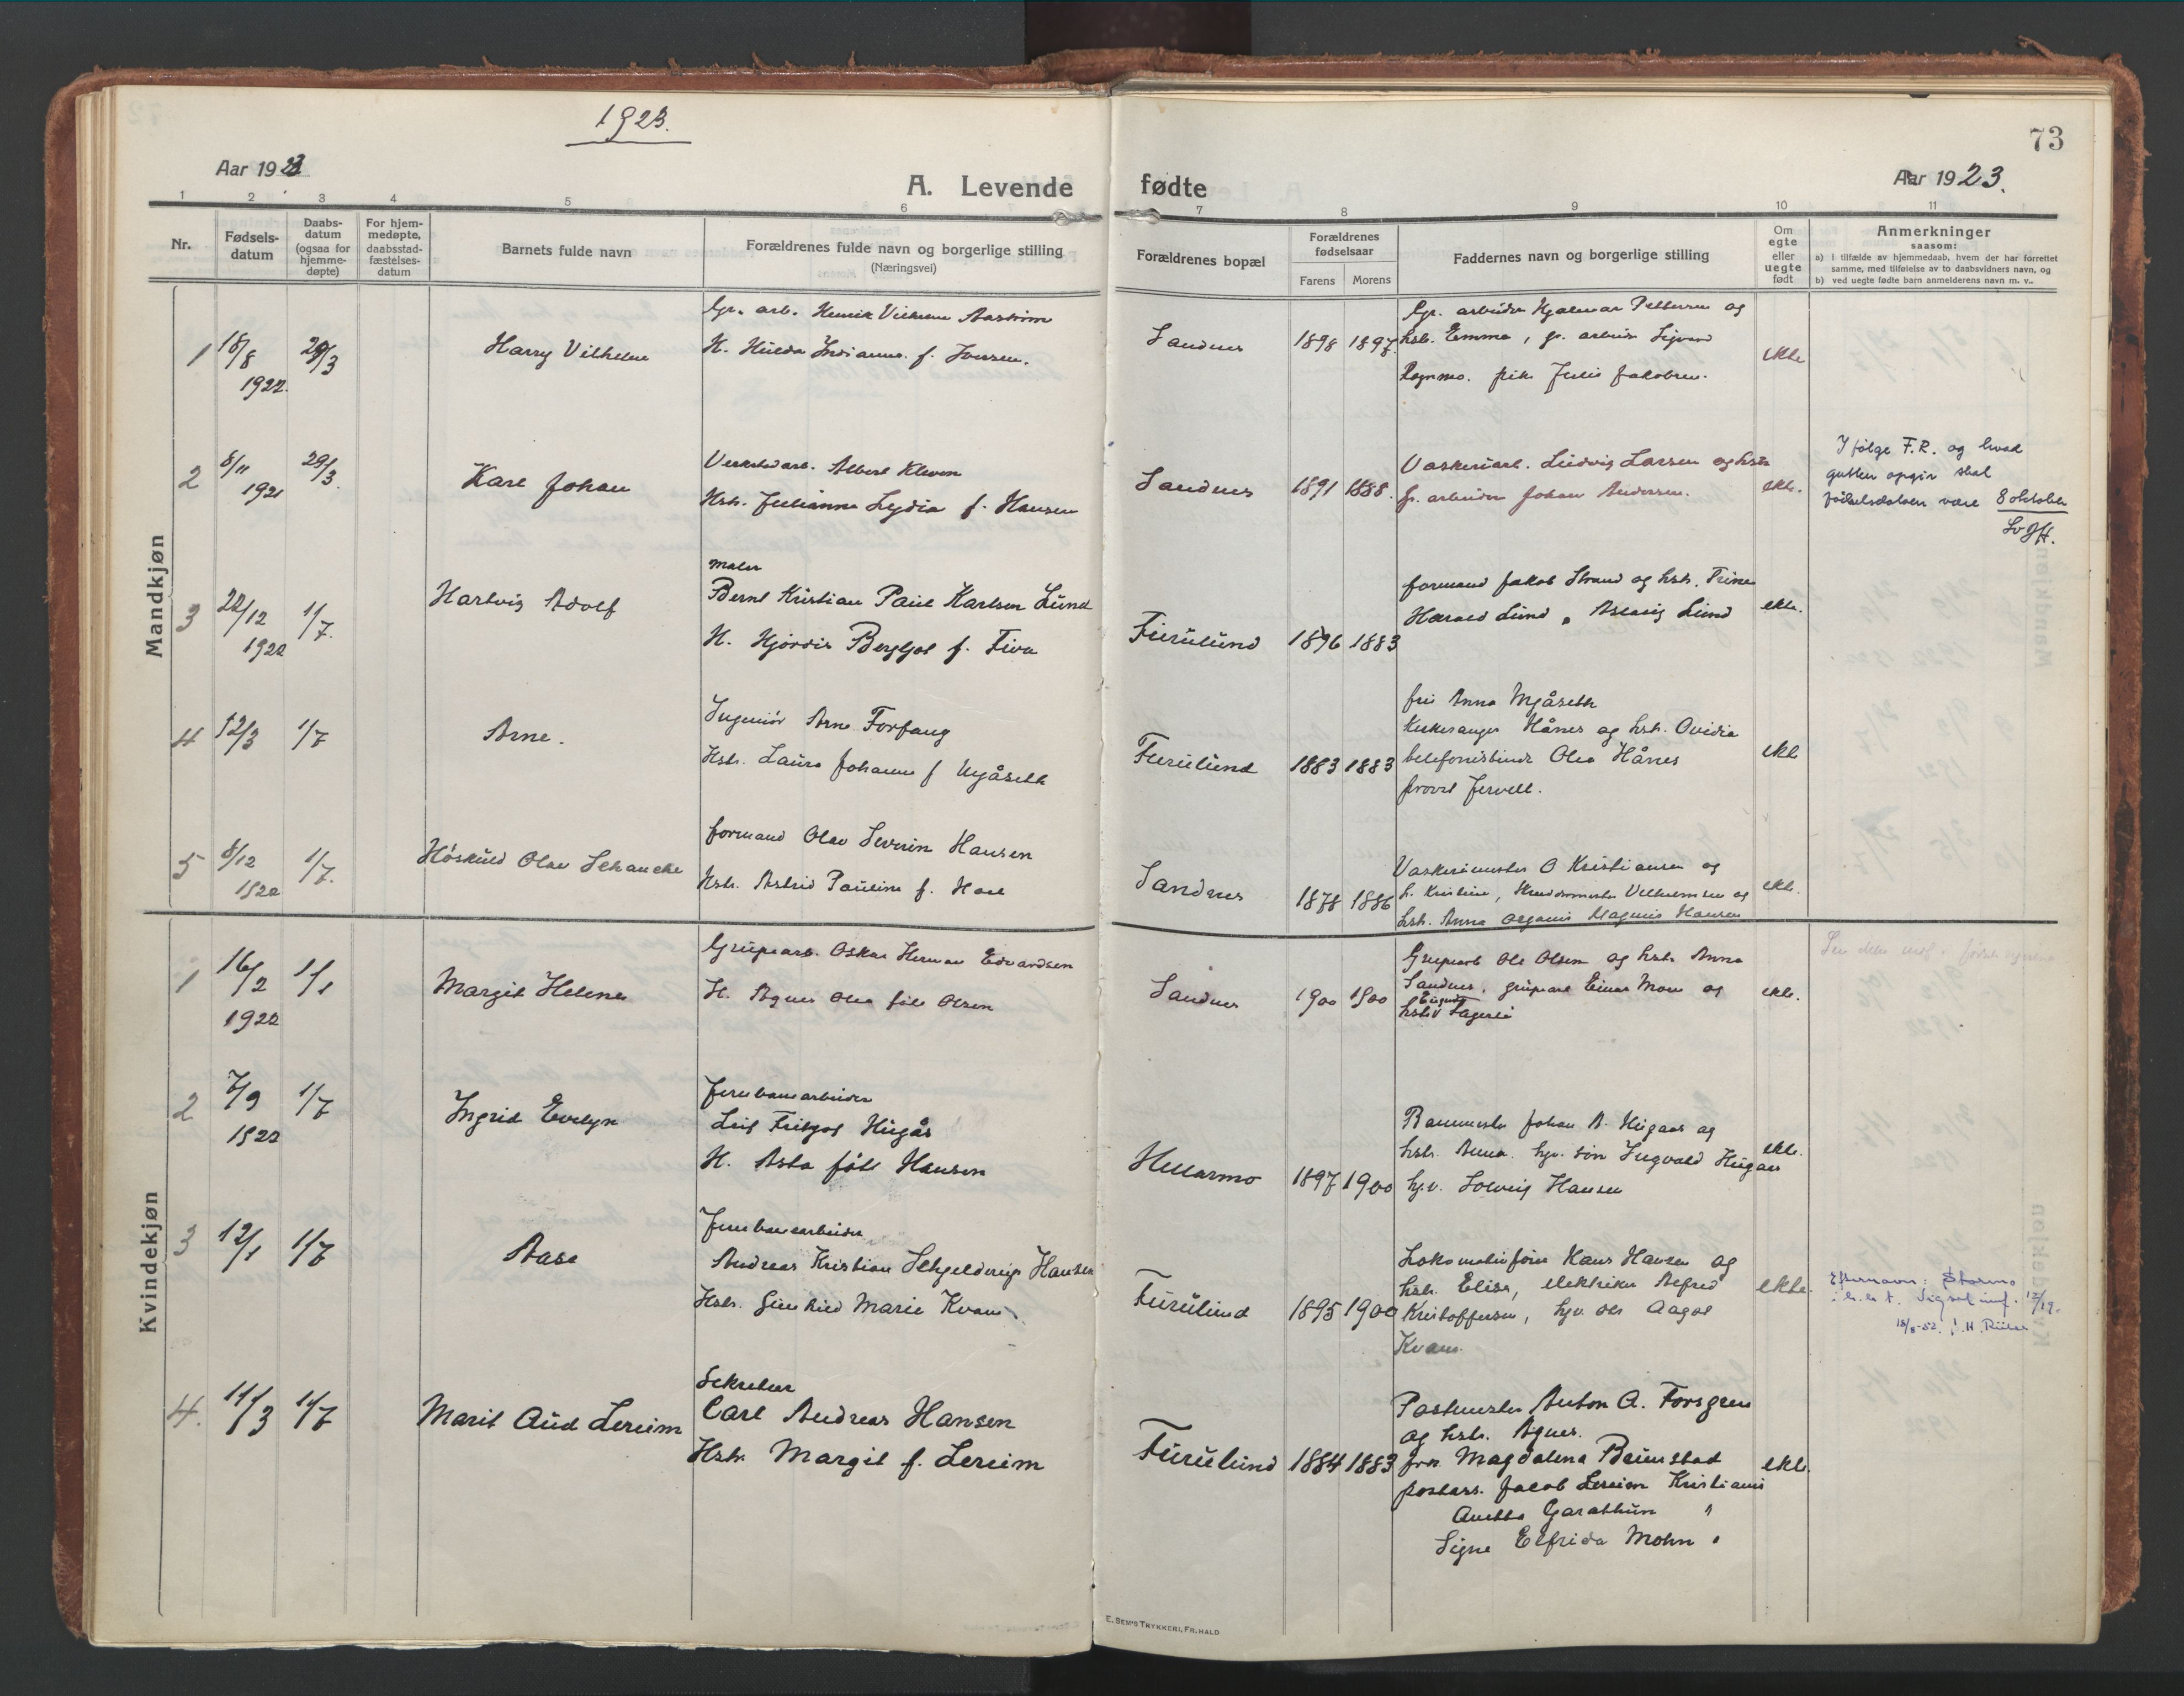 1923.
73
Aar 1923
A. Levende
fødte
Aar 1923.
1 2 3 4 5 6 7 8 9 10 11
Nr.
Fødsels-
datum
Daabs-
datum
(ogsaa for
hjemme-
døpte)
For hjem-
medøpte,
daabsstad-
fæstelses-
datum
Barnets fulde navn
Forældrenes fulde navn og borgerlige stilling
(Næringsvei)
Forældrenes bopæl
Forældrenes
fødselsaar
Farens Morens
Faddernes navn og borgerlige stilling
Om
egte
eller
uegte
født
Anmerkninger
saasom:
a) i tilfælde av hjemmedaab, hvem der har forrettet
samme, med tilføielse av to daabsvidners navn, og
b) ved uegte fødte barn anmelderens navn m. v..
Mandkjøn
1 18/8 1922. 29/3 Harry Vilhelm
Gr. arb. Henrik Vilhelm Aastrøm
H. Hulda Indianna f. Iversen.
Sandnes 1898 1897
Gr. arbeider Hjalmar Pettersen og
hstr. Emma, gr. arbeider Sigvard
Rognmo. pike Julie Jakobsen.
ekte
2 8/11 1921 29/3. Karl Johan
Verkstedarb. Albert Kleven
Hstr. Julianna Lydia f. Hansen
Sandnes 1891 1888.
Vaskeriarb. Ludvig Larsen og hstr
gr. arbeider Johan Andersen.
ekte.
Ifølge F.R. og hvad
gutten opgir skal
fødselsdatoen være 8 oktober
3 22/12 1922 1/7. Hartvig Adolf
maler
Bernt Kristian Paul Karlsen Lund
H. Hjørdis Bergljot f. Five
Furulund 1896 1883
formand Jakob Strand og hstr. Trine
Harald Lund, Aslaug Lund
ekte.
4 12/3 1/7 Arne.
Ingeniør Arne Forfang
Hstr. Laura Johanne f Myåseth
Furulund 1883 1883
frk Anna Myåseth
Kirkesanger Hånes og hstr. Ovidia
telefonistinde Olea Hånes
provst Jervell.
ekte
5 8/12 1922 1/7. Høskuld Olav Schanche
formand Olav Severin Hansen
Hstr. Astrid Pauline f. Hall
Sandnes 1878 1886
Vaskerimester O Kristiansen og
h. Kristine, Skredermester Vilhelmsen og
hstr. Anna Magnus Hansen
ekte.
Kvindekjøn
1 16/2 1922 1/1 Margit Helene
Grupearb. Oskar Herman Edvardsen
H. Agnes Olea født Olsen
Sandnes 1900 1900
Grupearb Ole Olsen og hstr Anna
Sandnes, grupearb Einar Moen og
hstr Fagerli
ekte.
2 7/9 1922 1/7 Ingrid Evelyn
Jernbanearbeider
Leif Fritjof Hugås
H. Asta født Hansen
Hellarmo 1897 1900
Banemester Johan B. Hugaas og
hstr. Anna. hjv. søn Ingvald Hugaas
hjv. Solveig Hansen
ekte.
3 12/1 1/7 Aase
Jernbanearbeider
Andreas Kristian Schjelderup Hansen
Hstr. Gunhild Marie Kvam
Furulund 1895 1900
Lokomotivfører Hans Hansen og
hstr. Elise, elektriker Alfred
Kristoffersen, hjv. dtr Aagot
Kvam.
ekte.
Efternavn: Stormo
4. 11/3 1/7 Marit Aud Lereim
Sekretær
Carl Andreas Hansen
Hstr. Margit f. Lereim
Furulund 1884 1883
Postmester Anton A. Forsgren
og hstr. Agnes.
frøk Magdalena Beinstad
postass. Jacob Lereim Kristiania
Anetta Garathun "
Signe Elfrida Mohn "
ekte.
E. SEM'S TRYKKERI, FR.HALD